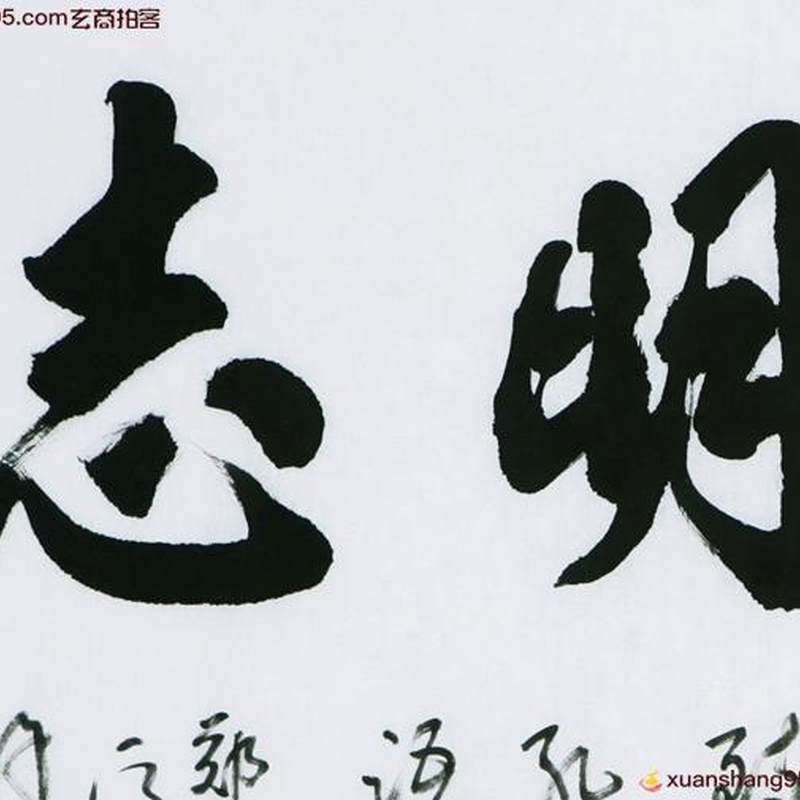 5.com玄商拍客
明志
孔
语
郑
xuanshang9